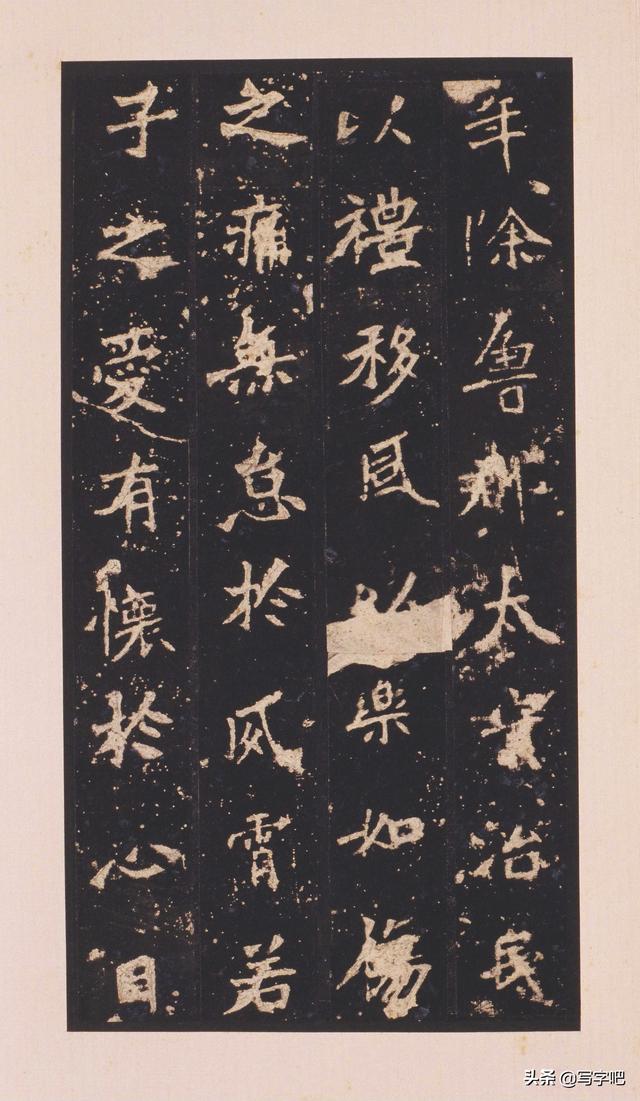 年除魯郡太守治民
以禮移風以樂如傷
之痛無怠於夙宵若
子之愛有懷於心目
头条 @写字吧